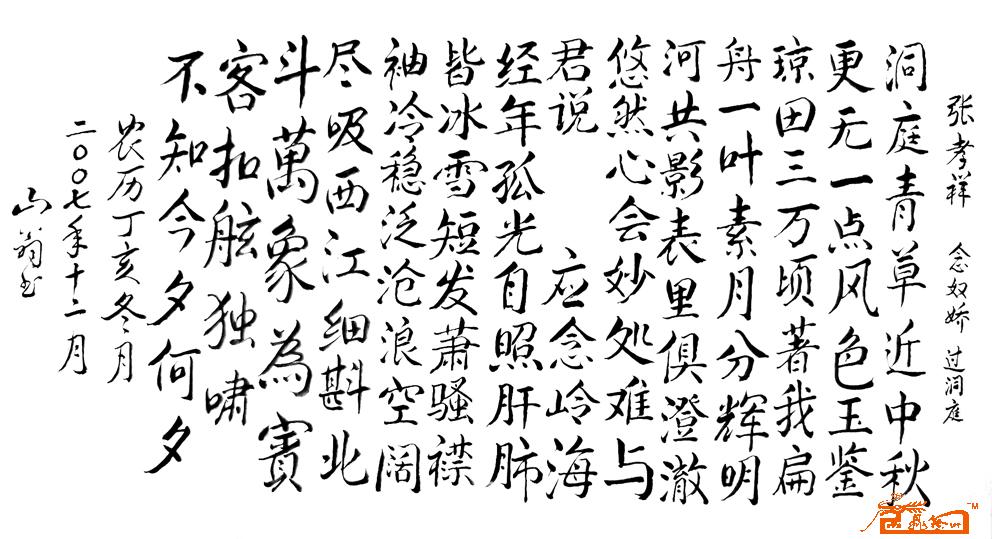 张孝祥 念奴娇 过洞庭
洞庭青草近中秋
更无一点风色玉鉴
琼田三万顷著我扁
舟一叶素月分辉明
河共影表里俱澄澈
悠然心会妙处难与
君说 应念岭海
经年孤光自照肝肺
皆冰雪短发萧骚襟
袖冷稳泛沧浪空阔
尽吸西江细斟北
斗萬象為賓
客扣舷独啸
不知今夕何夕
农历丁亥冬月
二〇〇七年十二月
山翁书